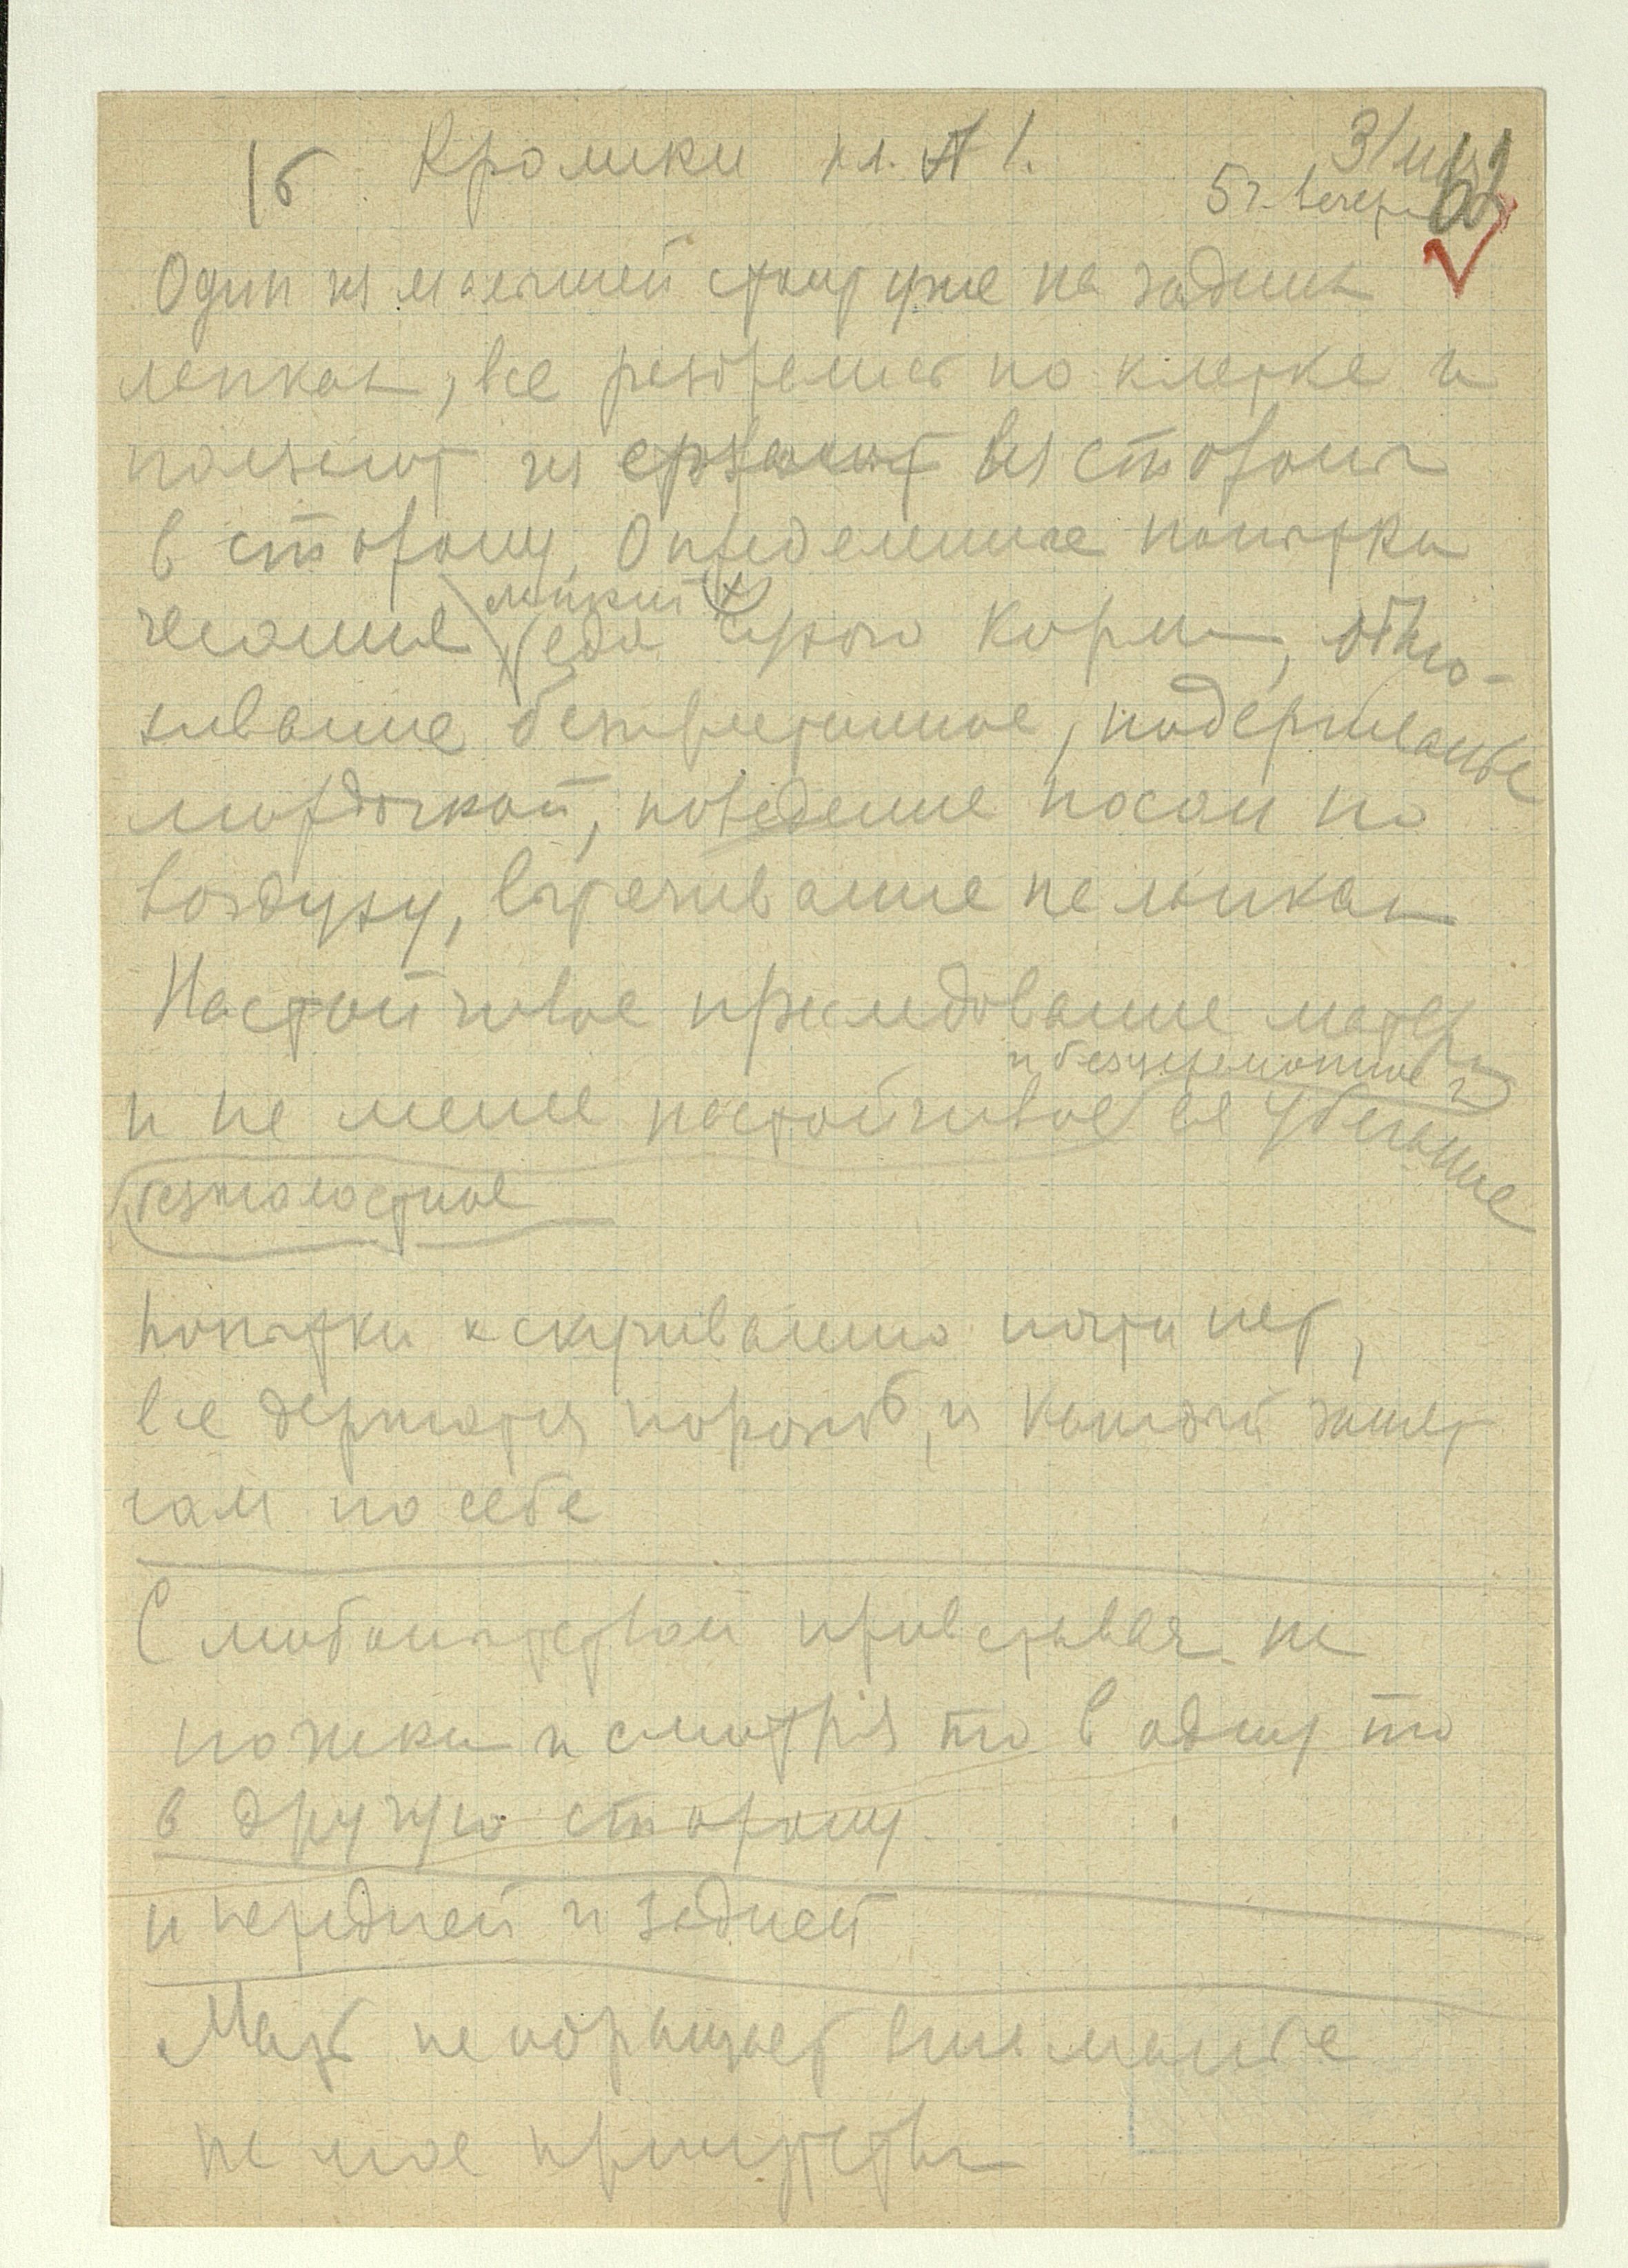 16 Кролики кл. А 1. 3/июня
5 ч. вечера
Один из малышей стоит уже на задних
лапках, все разбрелись по клетке и
ползают из стороны
в сторону. Определенные попытки
чесание еда сухого корма, обню-
хивание беспрестанное, подергиванье
мордочкой, поведение носом по
воздуху, вытягивание на лапках
Настойчивое преследование матери
и безцеремонное и
и не менее настойчивое ее убегание
безжалостное
Попытки к скучиванию почти нет,
все держатся порознь, и каждый занят
сам по себе
С любопытством привставая на
ножки и смотря то в одну то
в другую сторону.
и передней и задней
Мать не обращает внимание
на мое присутствие